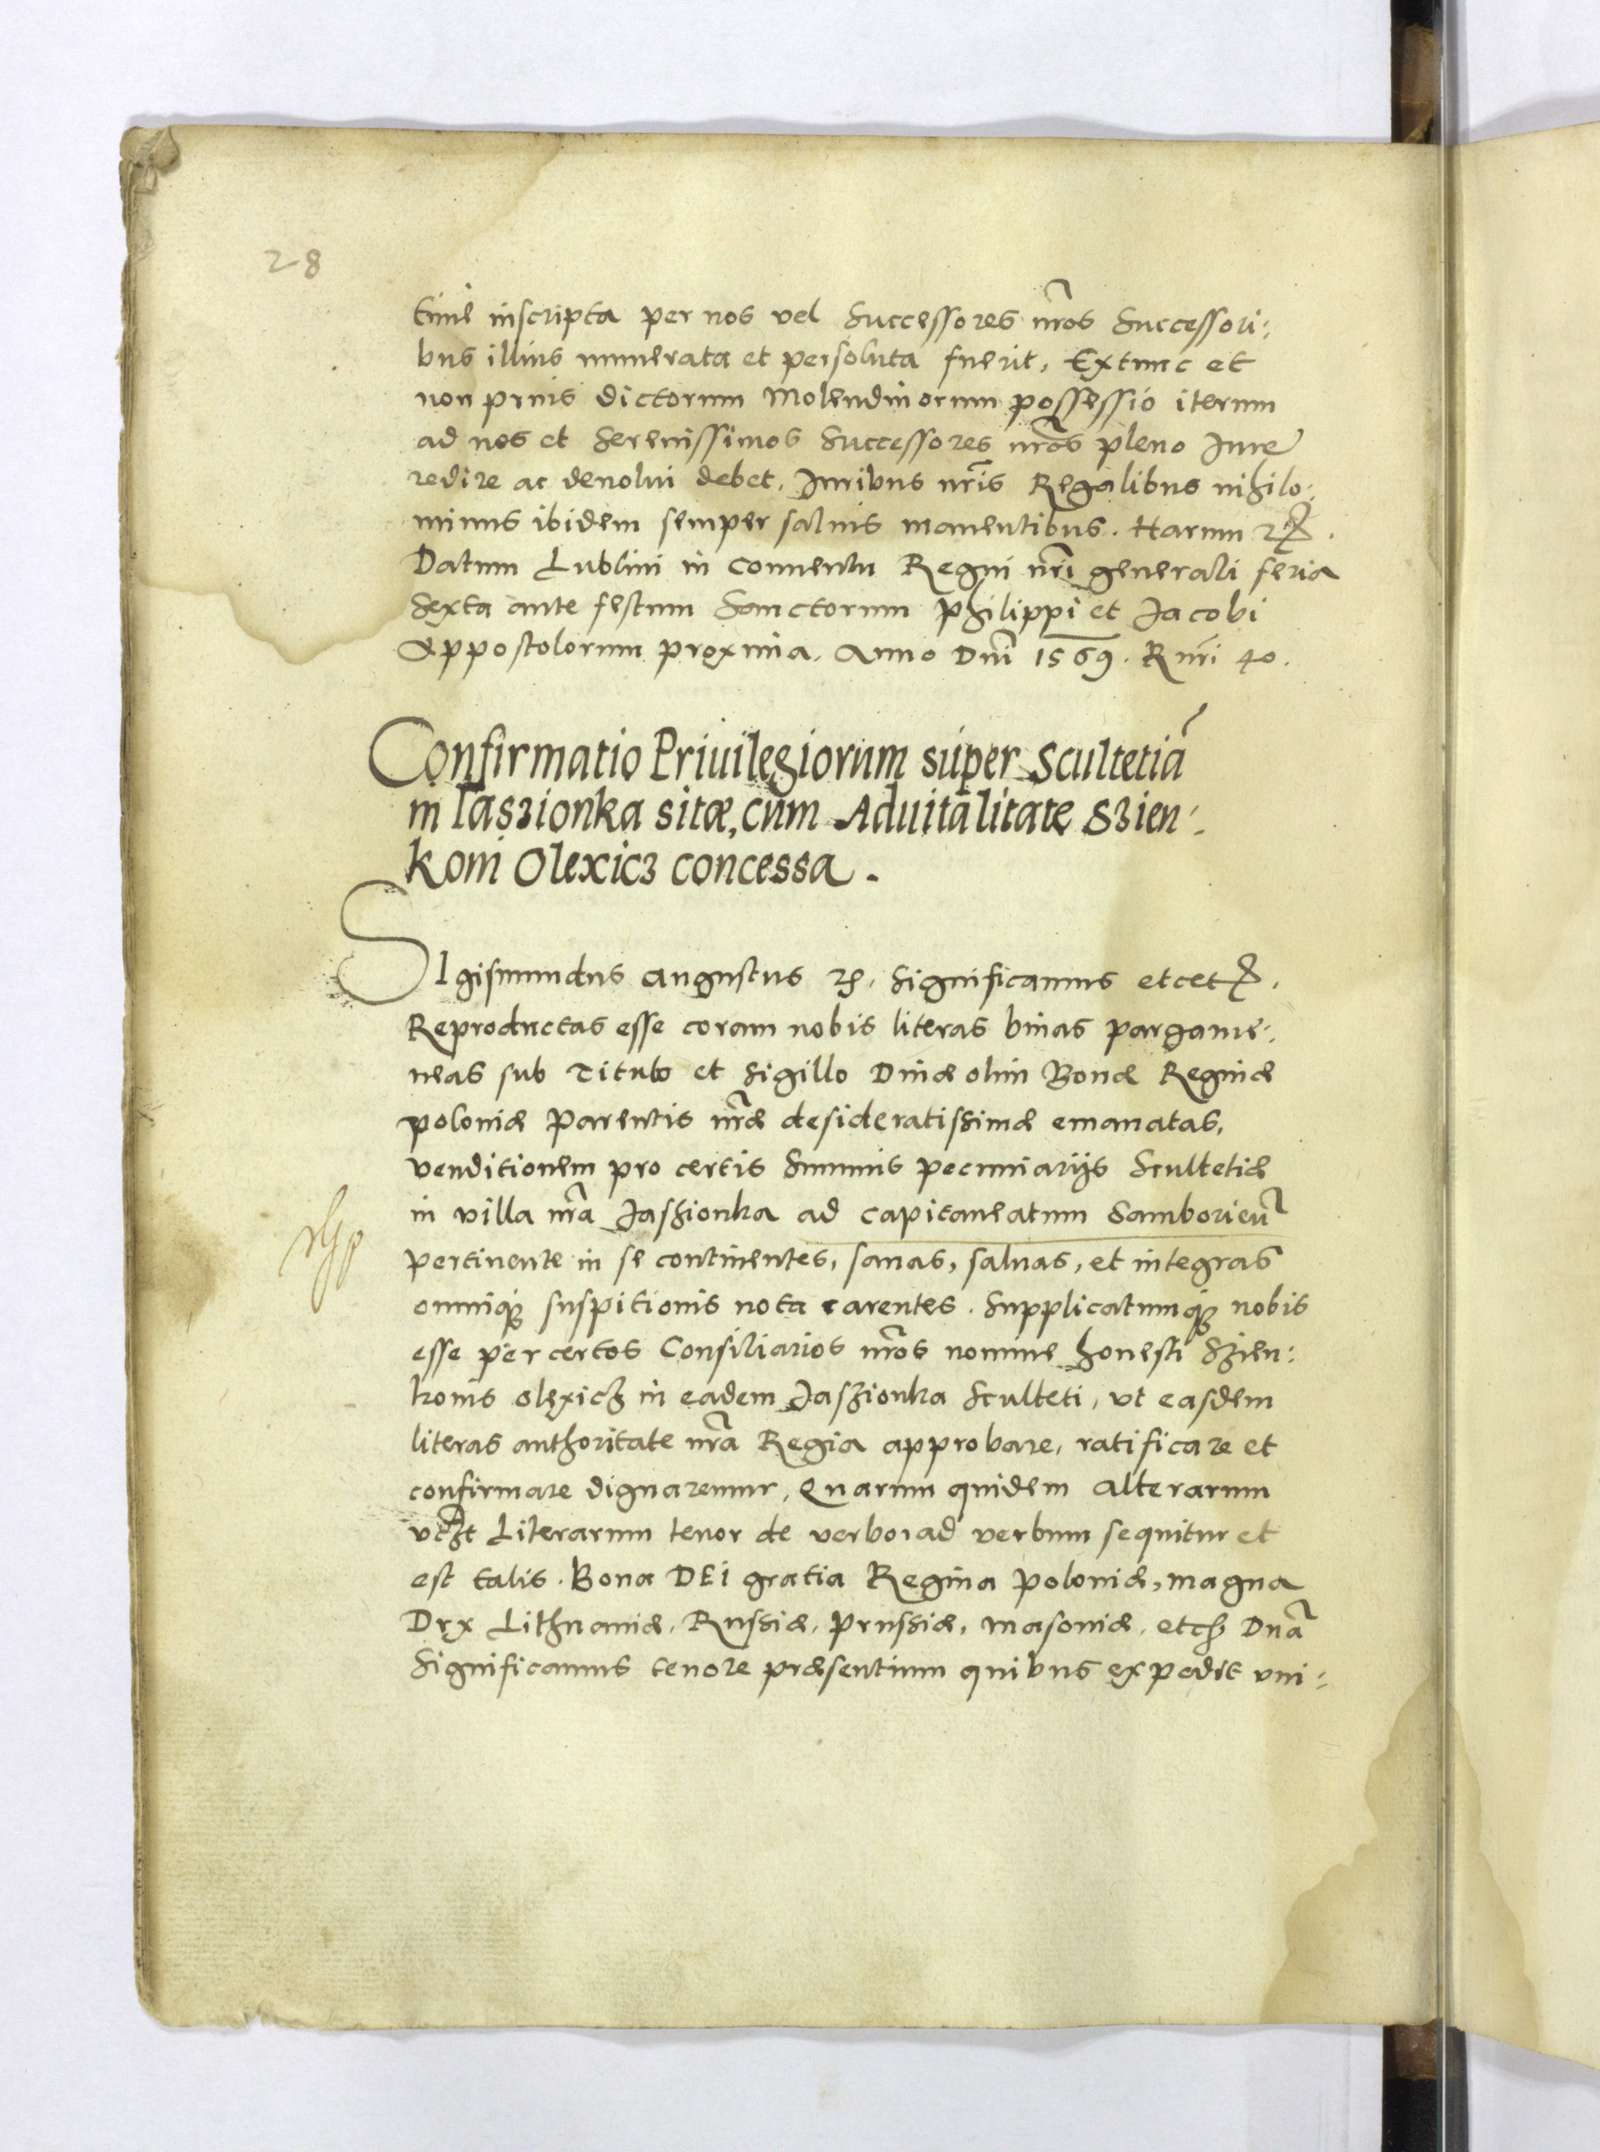 28
time inscripta per nos vel Successores nr̃os Successori:
bus illius numerata et persoluta fuerit, Extunc et
non prius dictorum Molendinorum possessio iterum
ad nos et Serenissimos Successores nr̃os pleno Iure
redire ac deuolui debet. Iuribus nr̃is Regalibus nihilo:
minus ibidem semper saluis manentibus. Harum
Datum Lublini in Conuentu Regni nr̃i generali feria
Sexta ante festum Sanctorum Philippi et Jacobi
Appostolorum proxima. Anno Dnĩ 1569. R nr̃i 40.
Confirmatio Priuilegiorum super Scultetiã
in Iaszionka sitæ, cum Aduitalitate Szien:
koni Olexicz concessa.
SIgismundus Augustus Significamus etcet.
Reproductas esse coram nobis literas binas pargame:
neas sub Titulo et Sigillo Diuæ olim Bonæ Reginæ
poloniæ Parentis nr̃æ desideratissimæ emanatas,
venditionem pro certis Summis pecuniarijs Scultetiæ
in villa nr̃a Jaszionka ad capitaneatum Samborieñ
pertinente in se continentes, sanas, saluas, et integras
omniq; suspitionis nota carentes. Supplicatumq; nobis
esse per certos Consiliarios nr̃os nomine honesti Szien:
konis Olexicz in eadem Jaszionka Sculteti, vt easdem
literas authoritate nr̃a Regia approbare, ratificare et
confirmare dignaremur, Quarum quidem Alterarum
Literarum tenor de verbo ad verbum sequitur et
est talis. Bona DEI gratia Regina poloniæ, magna
Dux Lithuaniæ, Russiæ, Prussiæ, Masouiæ, etc Dnã
Significamus tenore præsentium quibus expedit vni: